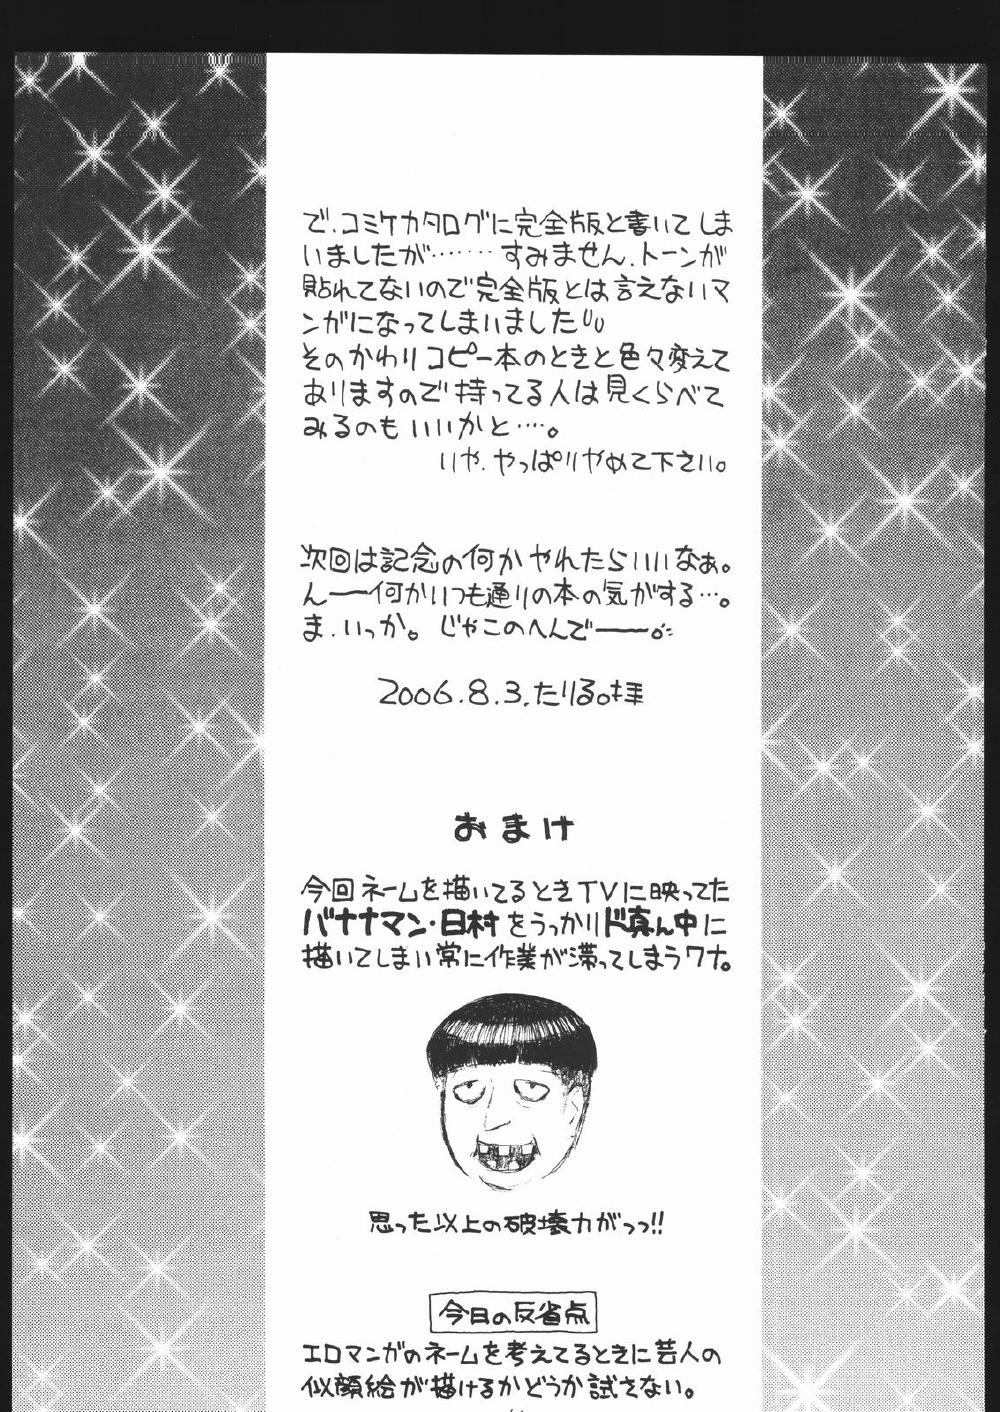 で、コミケカタログに完全版と書いてしま
いましたが……すみません、トーンが
貼れてないので完全版とは言えないマ
ンガになってしまいました
そのかわりコピー本のときと色々変えて
ありますので持ってる人は見くらべて
みるのもいいかと…。
いや、やっぱりやめて下さい。
次回は記念の何かやれたらいいなぁ。
んー何かいつも通りの本の気がする…。
ま、いっか。じゃこのへんでー。
2006.8.3.たりる。拝
おまけ
今回ネームを描いてるときTVに映ってた
バナナマン・日村をうっかりド真ん中に
描いてしまい常に作業が滞ってしまうワナ。
思った以上の破壊力がっっ!!
今日の反省点
エロマンガのネームを考えてるときに芸人の
似顔絵が描けるかどうか試さない。